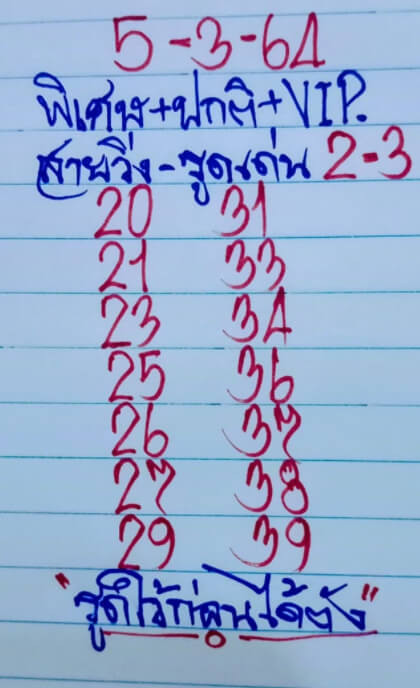 5-3-64
พิเศษ+ปกติ+VIP.
สายวิ่ง-รูดเด่น 2-3
20 31
21 33
23 34
25 36
26 37
27 38
29 39
"รู้ดีไว้ก่อนได้ตัง"